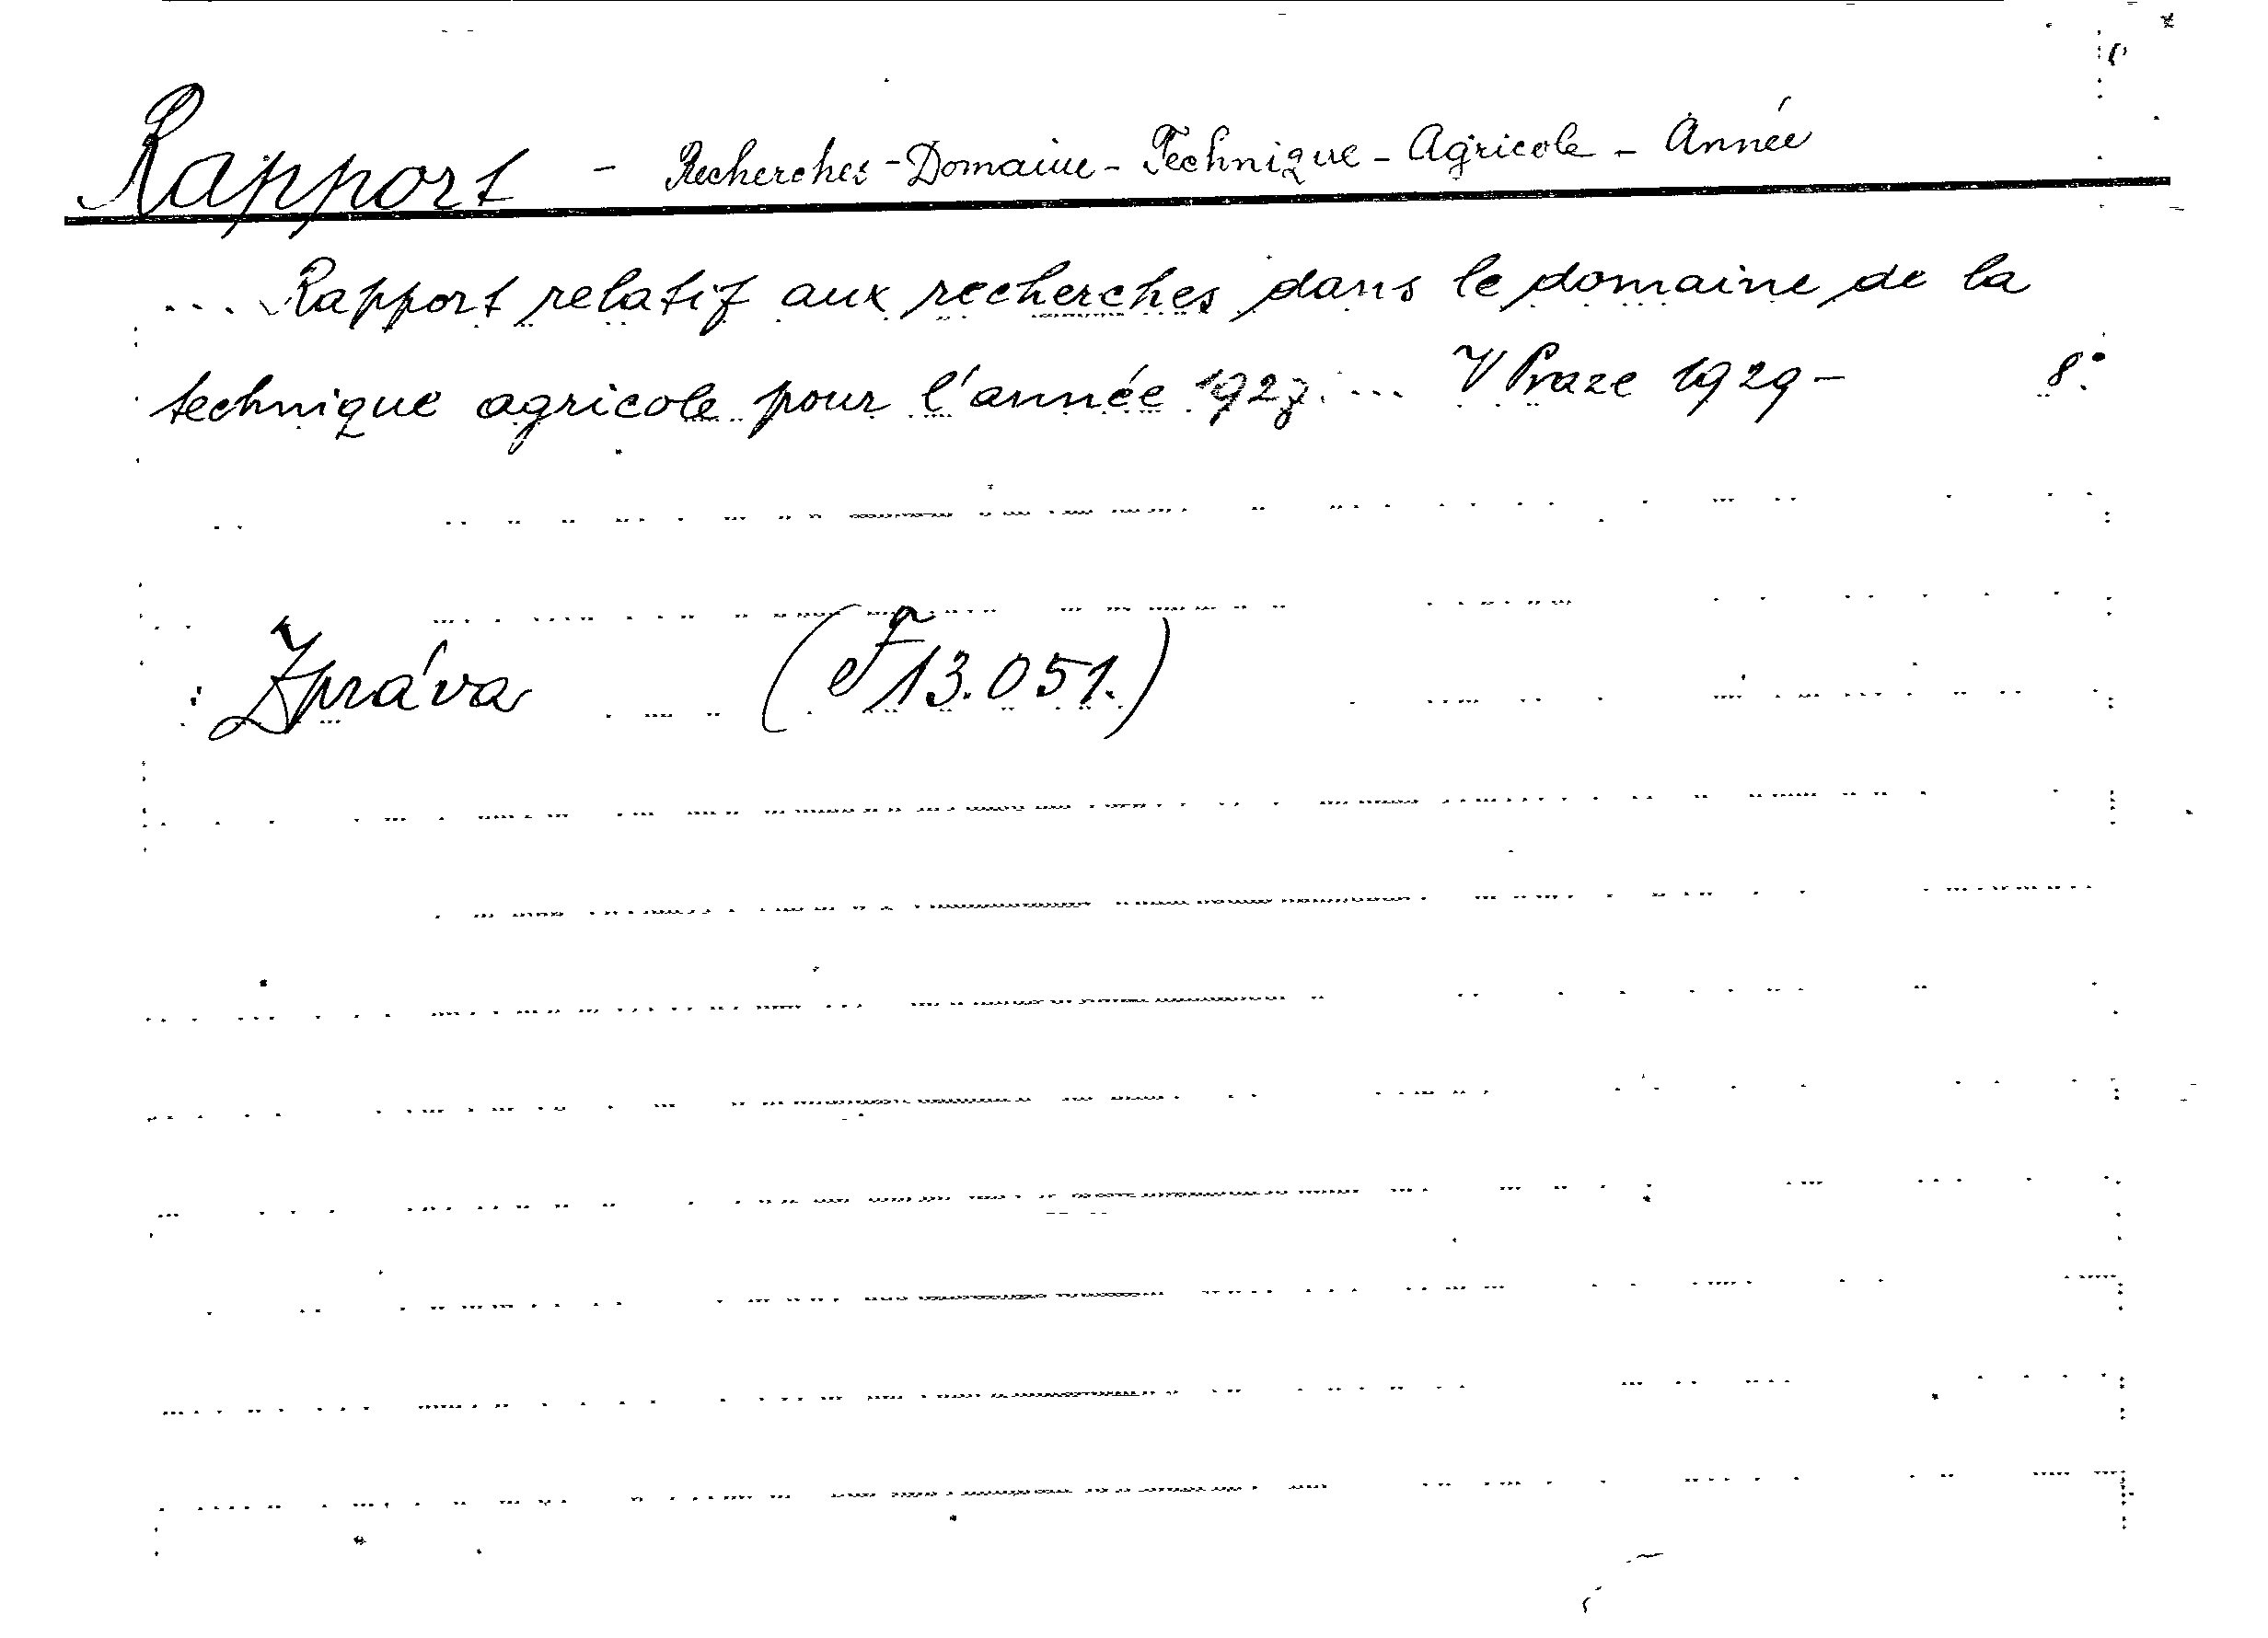 Rapport - Recherches - Domaine - Technique - Agricole - Année
... Rapport relatif aux recherches dans le domaine de la
technique agricole pour l'année 1927. ... V Praze 1929 - 8°
Zpráva (F 13.051.)